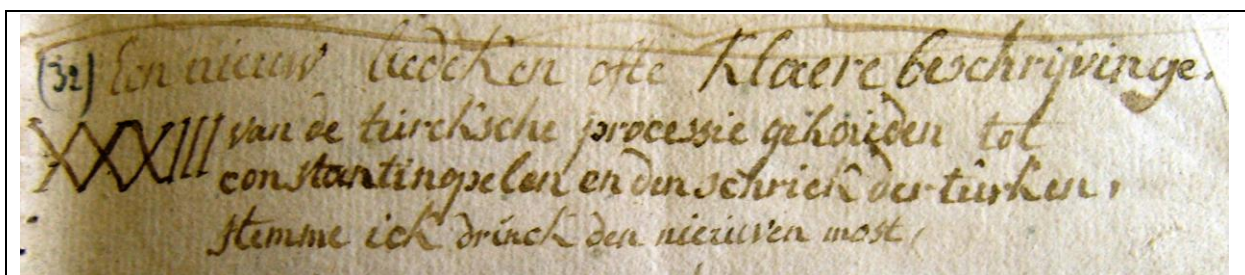 (32) Een nieuw liedeken ofte Klaere beschrijvinge.
XXXIII van de turcksche processie gehouden tot
constantinopelen en den schrick der turken,
stemme ick drinck den nieuwen most,